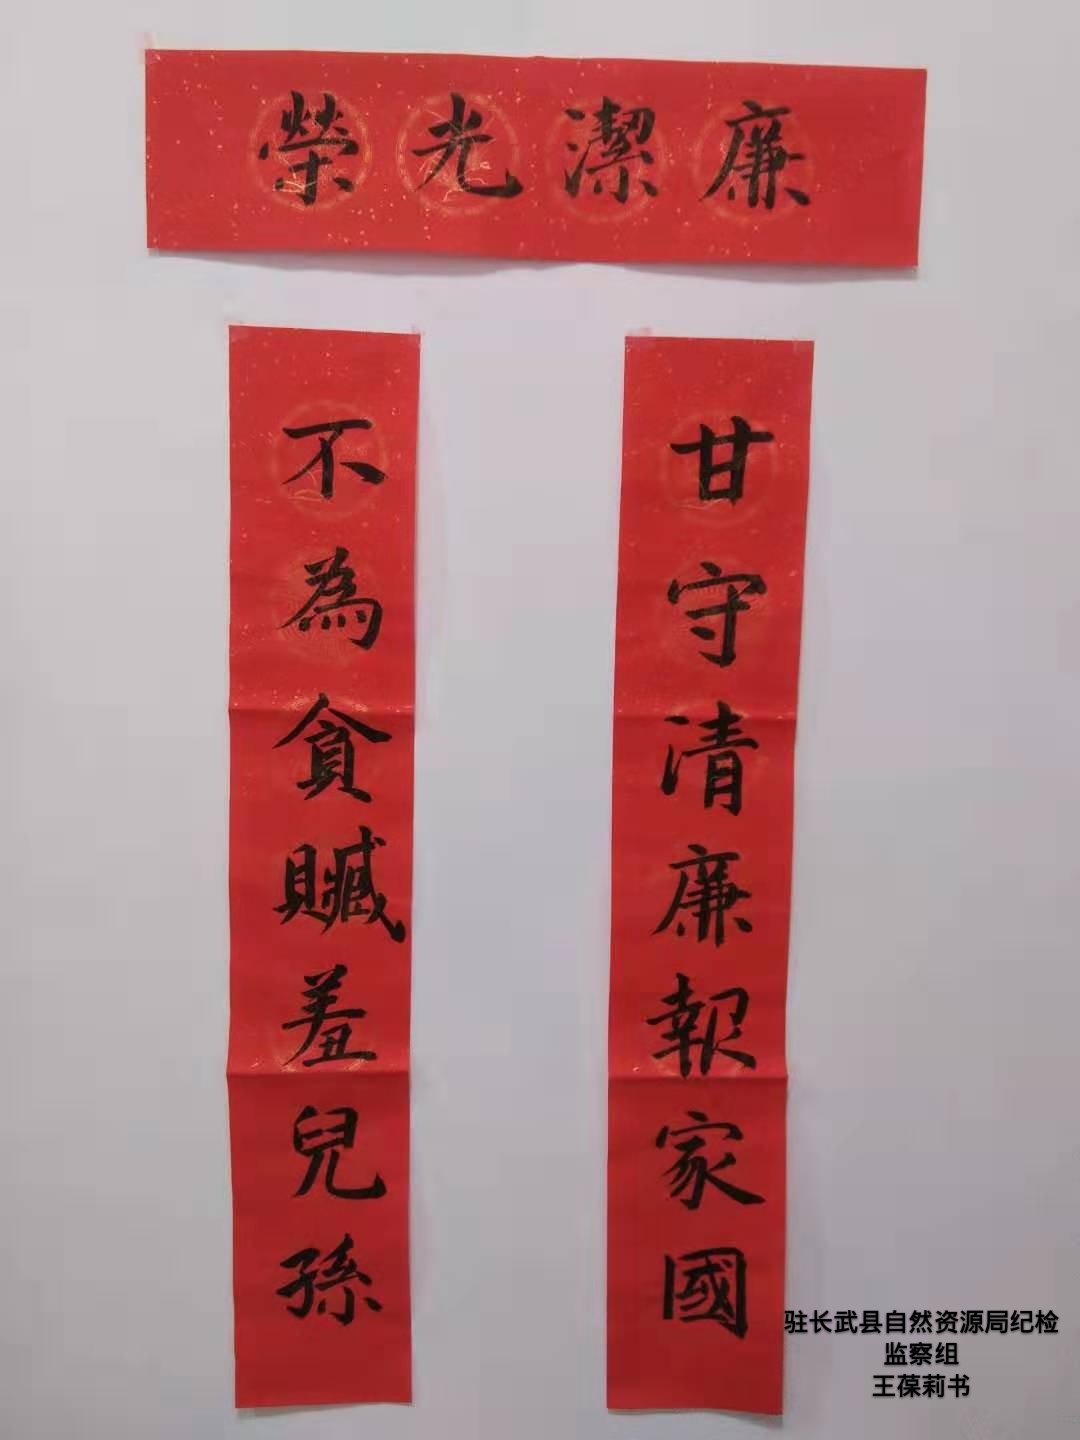 廉潔光榮
甘守清廉報家國
不為貪贓羞兒孫
驻长武县自然资源局纪检
监察组
王葆莉书